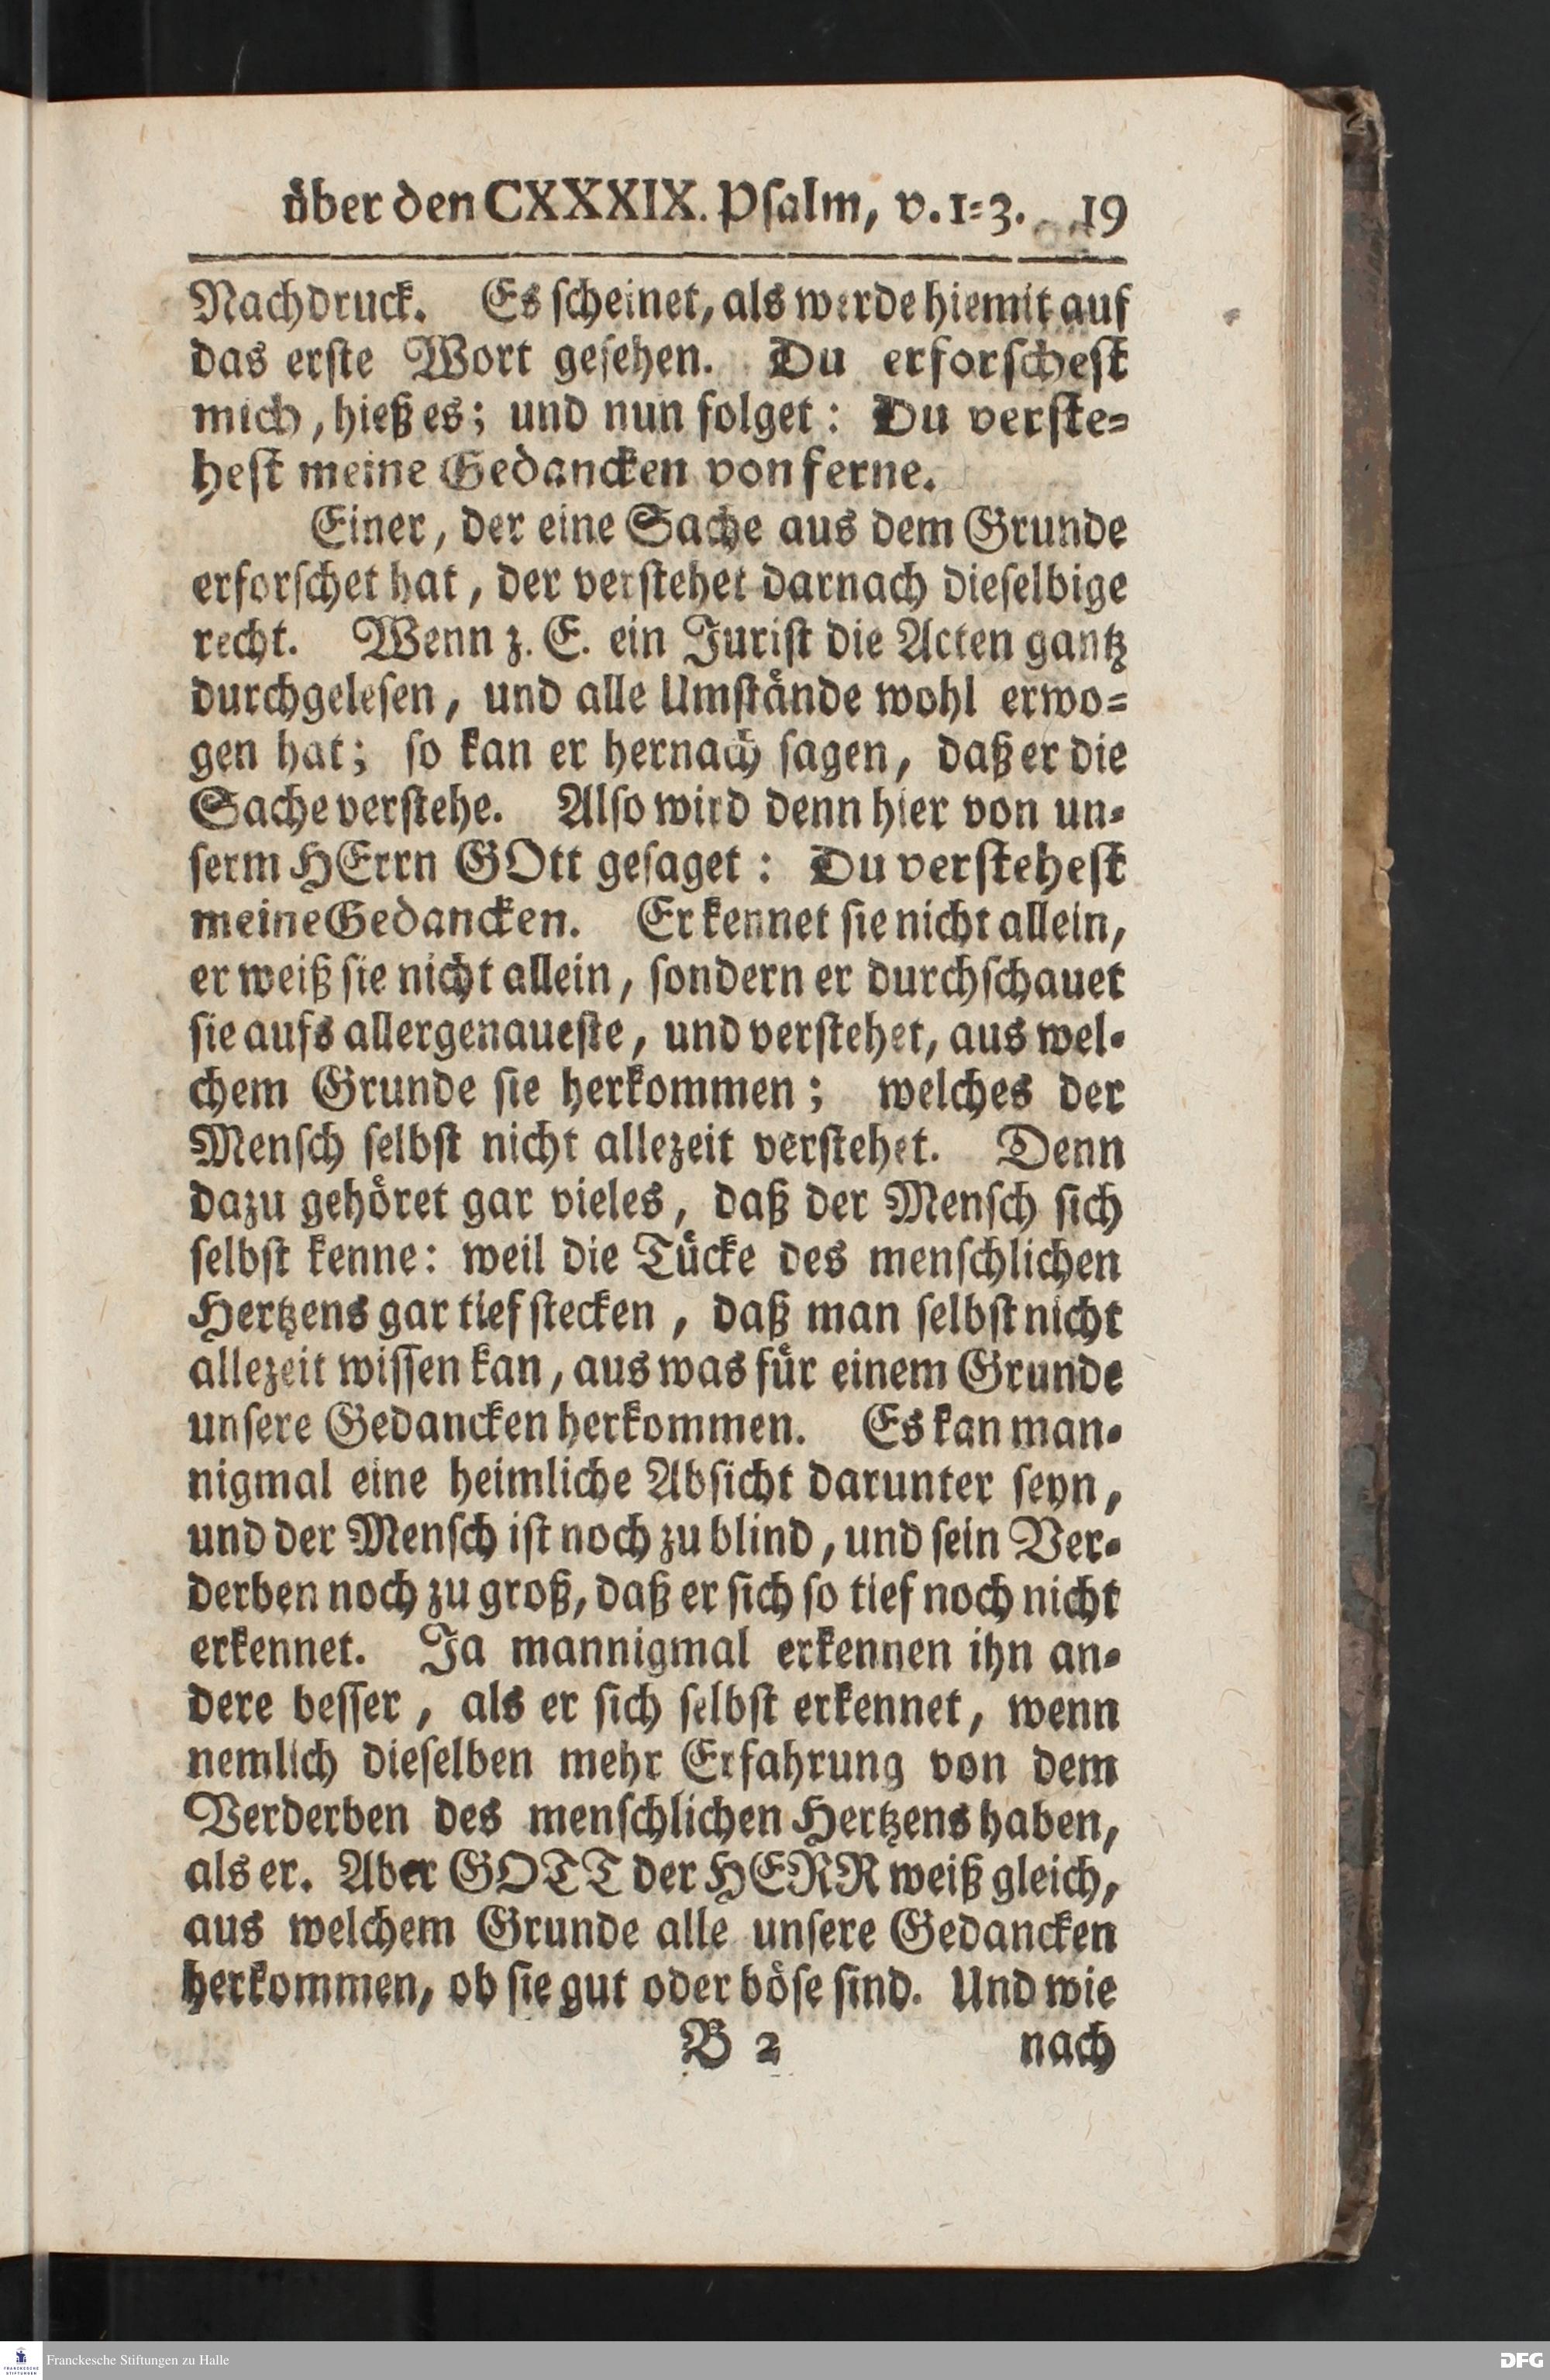 über den CXXXIX. Psalm, v. 1-3. 19
Nachdruck. Es scheinet, als werde hiemit auf
das erste Wort gesehen. Du erforschest
mich, hieß es; und nun folget: Du verste-
hest meine Gedancken von ferne.
Einer, der eine Sache aus dem Grunde
erforschet hat, der verstehet darnach dieselbige
recht. Wenn z. E. ein Jurist die Acten gantz
durchgelesen, und alle Umstände wohl erwo-
gen hat; so kan er hernach sagen, daß er die
Sache verstehe. Also wird denn hier von un-
serm HErrn GOtt gesaget: Du verstehest
meine Gedancken. Er kennet sie nicht allein,
er weiß sie nicht allein, sondern er durchschauet
sie aufs allergenaueste, und verstehet, aus wel-
chem Grunde sie herkommen; welches der
Mensch selbst nicht allezeit verstehet. Denn
dazu gehöret gar vieles, daß der Mensch sich
selbst kenne: weil die Tücke des menschlichen
Hertzens gar tief stecken, daß man selbst nicht
allezeit wissen kan, aus was für einem Grunde
unsere Gedancken herkommen. Es kan man-
nigmal eine heimliche Absicht darunter seyn,
und der Mensch ist noch zu blind, und sein Ver-
derben noch zu groß, daß er sich so tief noch nicht
erkennet. Ja mannigmal erkennen ihn an-
dere besser, als er sich selbst erkennet, wenn
nemlich dieselben mehr Erfahrung von dem
Verderben des menschlichen Hertzens haben,
als er. Aber GOTT der HERR weiß gleich,
aus welchem Grunde alle unsere Gedancken
herkommen, ob sie gut oder böse sind. Und wie
B 2 nach
FRANCKESCHE STIFTUNGEN
Franckesche Stiftungen zu Halle
DFG